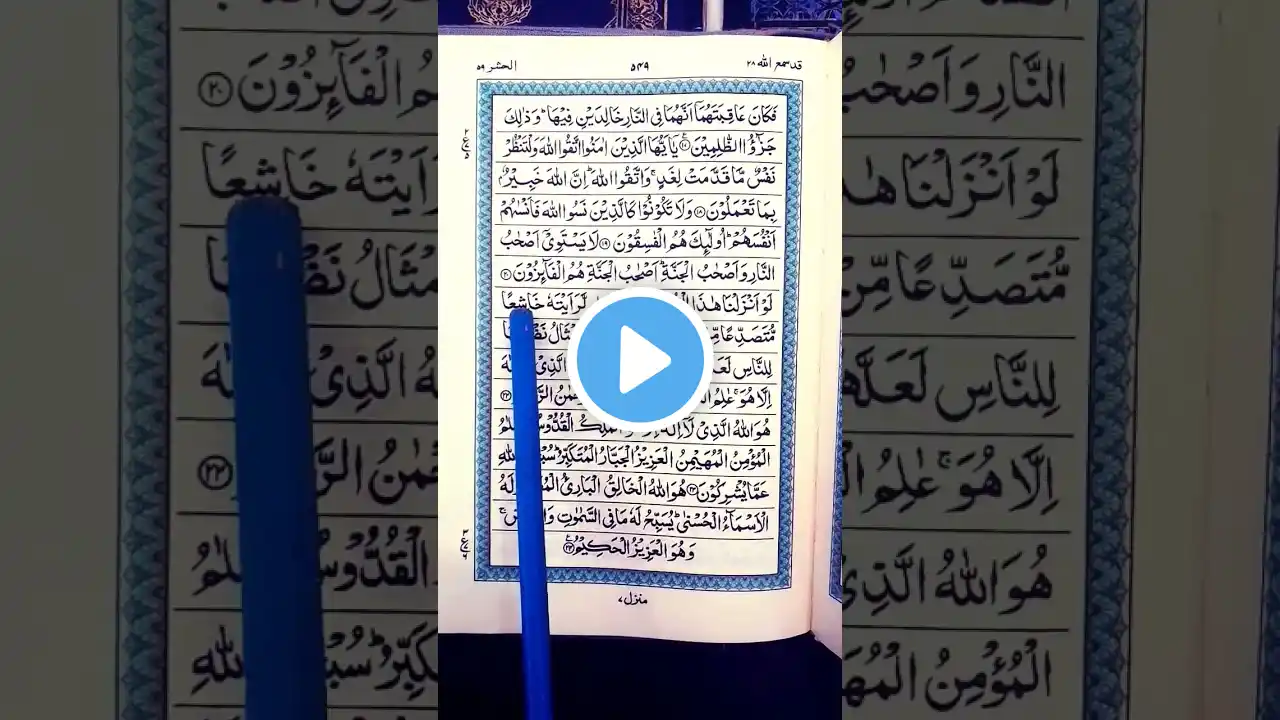 قد سمع الله ٢٨
٥٤٩
الحشر ٥٩
فَكَانَ عَاقِبَتَهُمَاۤ اَنَّهُمَا فِی النَّارِ خَالِدَیْنِ فِیْهَا ؕ وَ ذٰلِكَ
جَزٰٓؤُا الظّٰلِمِیْنَ ۠﴿۱۷﴾ یٰۤاَیُّهَا الَّذِیْنَ اٰمَنُوا اتَّقُوا اللّٰهَ وَلْتَنْظُرْ
نَفْسٌ مَّا قَدَّمَتْ لِغَدٍ ۚ وَ اتَّقُوا اللّٰهَ ؕ اِنَّ اللّٰهَ خَبِیْرٌۢ
بِمَا تَعْمَلُوْنَ ﴿۱۸﴾ وَ لَا تَكُوْنُوْا كَالَّذِیْنَ نَسُوا اللّٰهَ فَاَنْسٰىهُمْ
اَنْفُسَهُمْ ؕ اُولٰٓئِكَ هُمُ الْفٰسِقُوْنَ ﴿۱۹﴾ لَا یَسْتَوِیْۤ اَصْحٰبُ
النَّارِ وَ اَصْحٰبُ الْجَنَّةِ ؕ اَصْحٰبُ الْجَنَّةِ هُمُ الْفَآئِزُوْنَ ﴿۲۰﴾
لَوْ اَنْزَلْنَا هٰذَا لَّرَاَیْتَهٗ خَاشِعًا
مُّتَصَدِّعًا
لِلنَّاسِ الَّذِیْ
اِلَّا هُوَ ۚ عٰلِمُ ﴿۲۲﴾
هُوَ اللّٰهُ الَّذِیْ لَاۤ اِلٰهَ اَلْمَلِكُ الْقُدُّوْسُ
الْمُؤْمِنُ الْمُهَیْمِنُ الْعَزِیْزُ الْجَبَّارُ الْمُتَكَبِّرُ ؕ اللّٰهِ
عَمَّا یُشْرِكُوْنَ ﴿۲۳﴾ هُوَ اللّٰهُ الْخَالِقُ الْبَارِئُ لَهُ
الْاَسْمَآءُ الْحُسْنٰی ؕ یُسَبِّحُ لَهٗ مَا فِی السَّمٰوٰتِ
وَ هُوَ الْعَزِیْزُ الْحَكِیْمُ ۠﴿۲۴﴾
منزل ٧